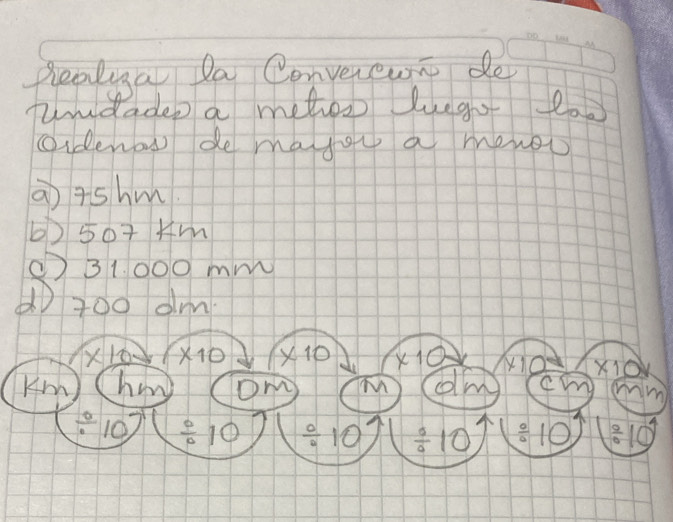 Realiza la Convercion de
unidades a metros luego las
ordenas de mayor a menor
a) 75 hm.
b) 507 Km
c) 31.000 mm
d) 700 dm.
×10 ×10 ×10 ×10 ×10 ×10
Km hm Dm M dm cm mm
÷10 ÷10 ÷10 ÷10 ÷10 ÷10